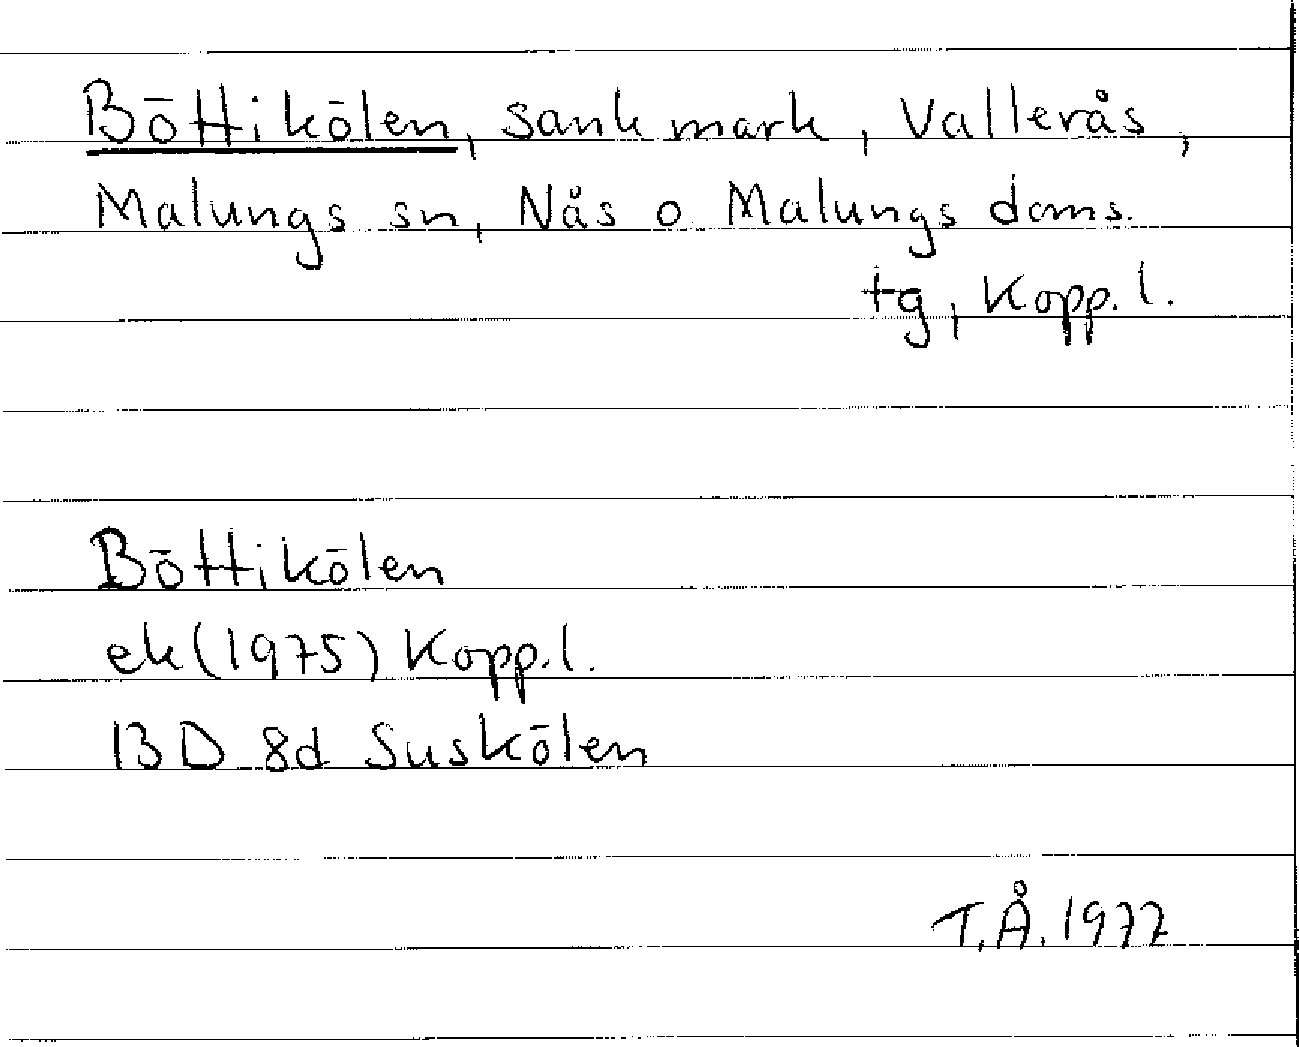 Böttikölen, sank mark, Vallerås,
Malungs sn, Nås o Malungs doms.
tg, Kopp.l.
Böttikölen
ek(1975) Kopp.l.
13 D 8d Suskölen
T.Å. 1977